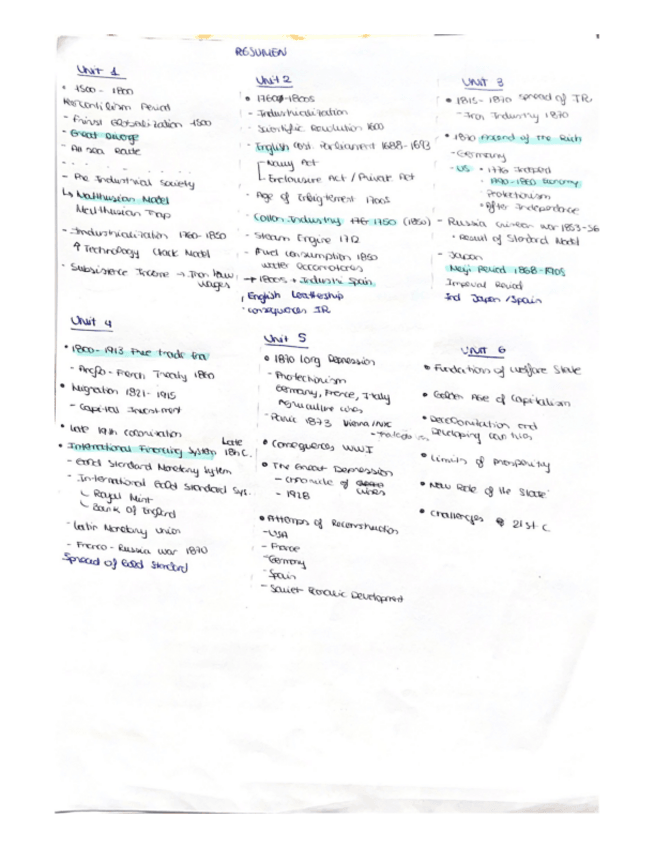 RESUMEN
Unit 1
• 1500 - 1800
Mercantilism Period
- First Globalization 1500
- Great Diverge
- All sea Route
- - - - - - -
- Pre Industrial Society
↳ Malthusian Model
Malthusian Trap
- Industrialization 1760-1850
↑ Technology Clock Model
- Subsistence Income → Iron law
wages
Unit 2
• 1760-1800s
- Industrialization
- Scientific Revolution 1600
- English Parliament 1688-1693
Navy Act
Enclosure Act / Private Act
- Age of Enlightment 1700s
- Cotton Industry 1750 (1850)
- Steam Engine 1712
- Fuel consumption 1850
water
→ 1800s → Industr Spain
, English Leadership
· consequences IR
UNIT 3
• 1815-1870 Spread of IR
- Iron Industry 1870
• 1870 of the Rich
- Germany
- US • 1776
• 1790-1860 Economy
• Protectionism
• After Independence
- Russia war 1853-56
• Result of Standard Model
- Japan
Meiji Period 1868-1905
Imperial Period
Ind Japan / Spain
Unit 4
• 1800-1913 Free trade Era
- Anglo-French Treaty 1860
• Migration 1821-1915
- Capital Investment
• Late 19th colonization
• International Financing System Late 18th C.
- Gold Standard Monetary System
- International Gold Standard Sys.
Royal Mint
Bank of England
- Latin Monetary Union
- Franco-Russia war 1870
Spread of Gold Standard
Unit 5
• 1870 long Depression
- Protectionism
Germany, France, Italy
Agriculture
- Panic 1873 Viena/NYC
• Consequences WWI
• The Great Depression
- chronicle of crises
- 1928
• Attemps of Reconstruction
- USA
- France
- Germany
- Spain
- Soviet Economic Development
UNIT 6
• Fundation of welfare State
• Golden Age of Capitalism
• Decolonization and
Developing countries
• Limits of prosperity
• New Role of the State
• challenges 21st C.